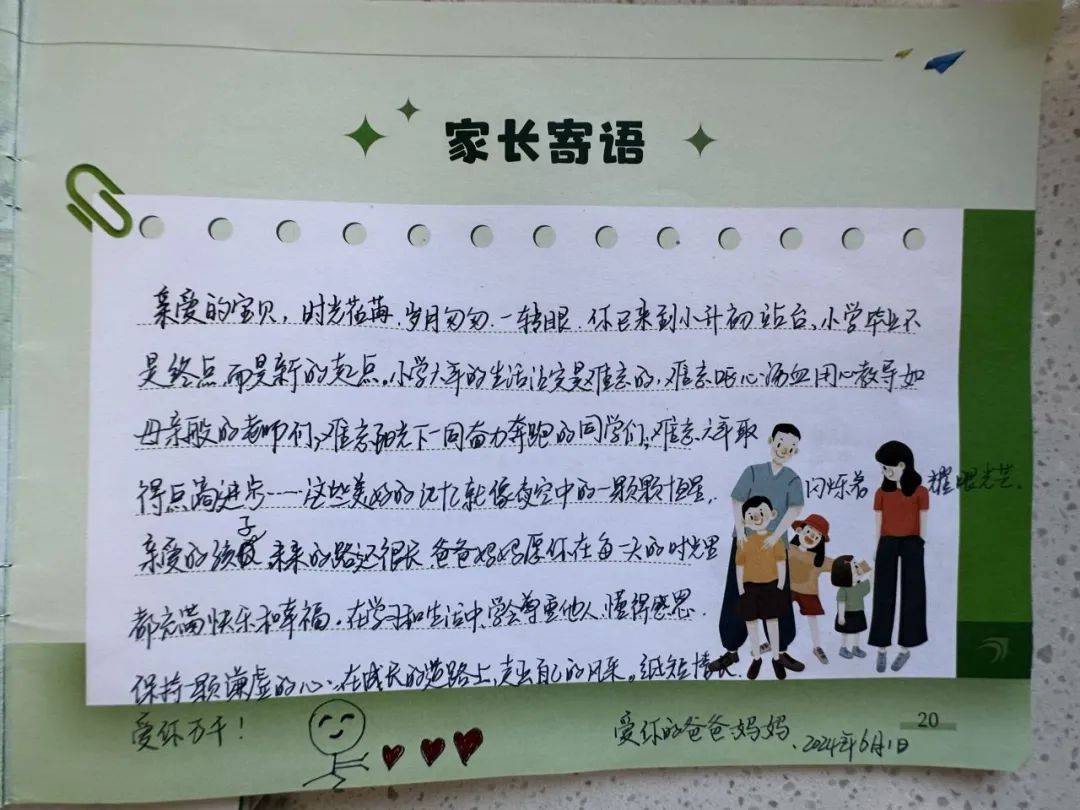 家长寄语
亲爱的宝贝，时光荏苒，岁月匆匆，一转眼，你已来到小升初站台，小学毕业不
是终点，而是新的起点。小学六年的生活注定是难忘的，难忘呕心沥血用心教导如
母亲般的老师们，难忘阳光下一同奋力奔跑的同学们，难忘六年取
得点滴进步……这些美好的记忆就像夜空中的一颗颗恒星，闪烁着耀眼光芒。
亲爱的孩子，未来的路还很长，爸爸妈妈愿你在每一天的时光里
都充满快乐和幸福。在学习和生活中，学会尊重他人，懂得感恩，
保持一颗谦虚的心，在成长的道路上，走出自己的风采。纸短情长，
爱你万千！
爱你的爸爸妈妈、2024年6月1日
20